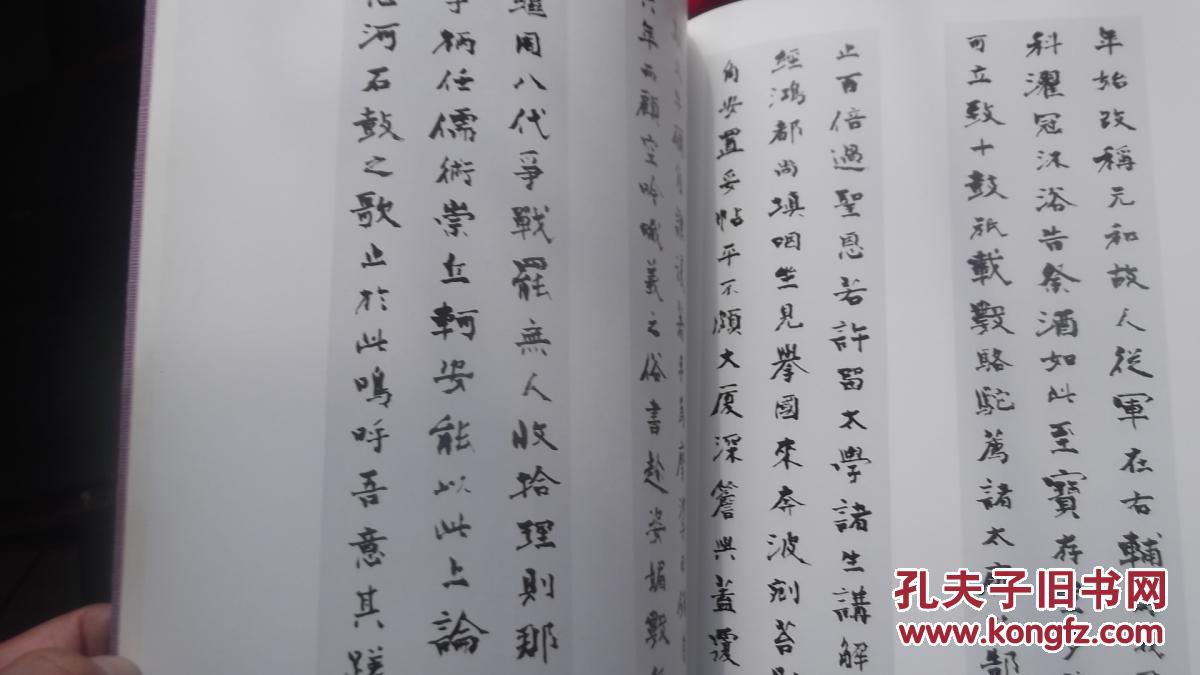 年始改稱元和故人從軍在右輔
科濯冠沐浴告祭酒如此至寶存
可立致十鼓秪載數駱駝薦諸太廟
止百倍過聖恩若許留太學諸生講解
經鴻都尚填咽坐見舉國來奔波剜苔
角安置妥帖平不頗大廈深簷與蓋覆
年西顧空吟哦義之俗書趁姿媚數
繼周八代爭戰罷無人收拾理則那
柄任儒術崇丘軻安能以此上論
河石鼓之歌止於此嗚呼吾意其蹉
孔夫子旧书网
www.kongfz.com